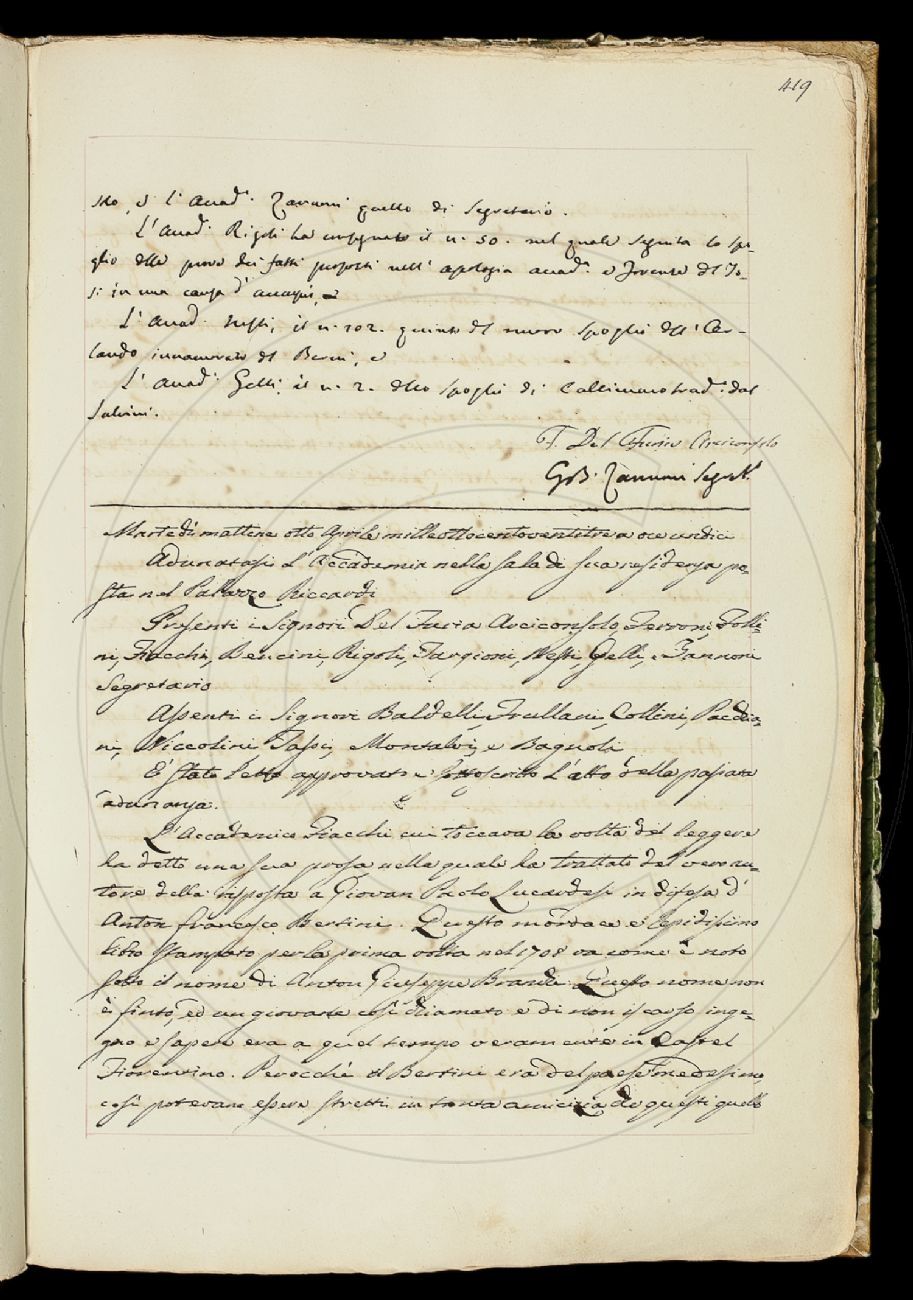 419
sto, e l'Accad.º Zannoni quello di Segretario.
L'Accad.º Rigoli ha consegnato il n. 50. nel quale seguita lo spo-
glio delle prove dei fatti proposti nell'apologia
si in una causa d'
L'Accad.º Nesti, il n. 102. quinto del nuovo spoglio dell'Or-
lando innamorato del Berni, e
L'Accad.º Gelli il n. 2. dello spoglio di Callimaco trad.º dal
Salvini.
F. Del Furia Arciconsolo
G. B. Zannoni Segret.º
Martedì mattina otto Aprile milleottocentoventitre a ore undici
Adunatasi l'Accademia nella sala di sua residenza po-
sta nel Palazzo Riccardi
Presenti i Signori Del Furia Arciconsolo, Ferroni, Folli-
ni, Fiacchi, Bencini, Rigoli, Targioni, Nesti, Gelli, e Zannoni
Segretario
Assenti i Signori Baldelli, Frullani, Collini, Paccia-
ni, Niccolini, Tassi, Montalvi, e Bagnoli
E' stato letto approvato e sottoscritto l'atto della passata
adunanza.
L'Accademico Fiacchi cui toccava la volta del leggere
ha detto una sua prosa nella quale ha trattato del vero au-
tore della risposta a Giovan Paolo Lucardesi in difesa d'
Anton francesco Bertini. Questo mordace e lepidissimo
libro stampato per la prima volta nel 1708 va come è noto
sotto il nome di Anton Giuseppe Branchi. Questo nome non
è finto, ed un giovane così chiamato e di non iscarso inge-
gno e sapere era a quel tempo veramente in Castel
Fiorentino. Perocchè il Bertini era del paese medesimo,
così potevano essere stretti in tanta amicizia da questi quello